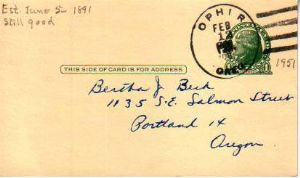 Est. June 5- 1891
Still good
OPHIR
FEB
12
OREG.
1951
THIS SIDE OF CARD IS FOR ADDRESS
Bertha J. Beck
1135 S.E. Salmon Street
Portland 14
Oregon